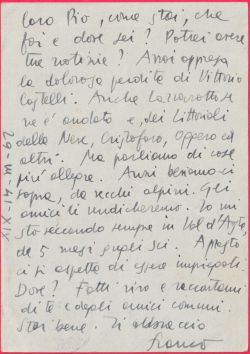 Caro Pio, come stai, che
fai e dove sei? Potrei avere
tue notizie? Avrai appreso
la dolorosa perdita di Vittorio
Castelli. Anche Lazzarotto se
ne è andato e, dei Littoriali
della Neve, Cristoforo,
altri. Ma parliamo di cose
più allegre. Anzi beviamoci
sopra, da vecchi alpini. Gli
amici li vendicheremo. Io mi
sto seccando sempre in Val d'Aosta,
da 5 mesi sugli sci. Adesso
ci si aspetta di essere impiegati.
Dove? Fatti vivo e raccontami
di te e degli amici comuni.
Stai bene. Ti abbraccio
Franco
29-III-41-XIX